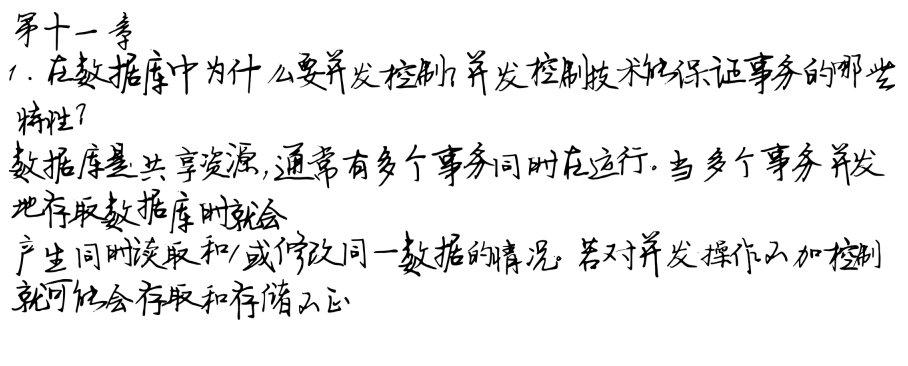 第十一章
1. 在数据库中为什么要并发控制?并发控制技术能保证事务的哪些
特性?
数据库是共享资源,通常有多个事务同时在运行。当多个事务并发
地存取数据库时就会
产生同时读取和/或修改同一数据的情况。若对并发操作不加控制
就可能会存取和存储不正